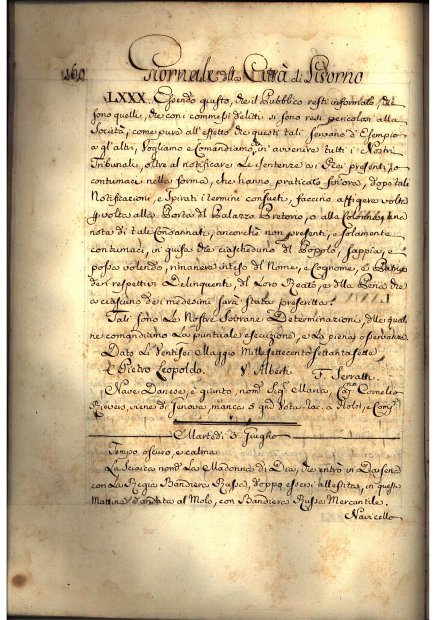 160
Giornale della Città di Livorno
LXXX. Essendo giusto, che il Pubblico resti informato, che
sono quelli, che con i commessi delitti si sono resi pericolosi alla
Società; come pure all'effetto che questi tali servano d'Esempio
a gl'altri, Vogliamo e Comandiamo, in avvenire tutti i Nostri
Tribunali, oltre al notificare le sentenze a i Rei presenti, o
contumaci nella forma, che hanno praticato sin'ora, dopo tali
Notificazioni, e spirati i termini consueti, faccino affigere volta
p volta alla Porta del Palazzo Pretorio, o alla Colonna, una
nota di tali Condannati, ancorchè non presenti, e solamente
contumaci, in guisa che ciascheduno del Popolo, sappia, e
possa volendo, rimanere inteso del Nome, e Cognome, e Patria
dei respettivi Delinquenti, del Loro Reato, e della Pena che
a ciascuno dei medesimi sarà stata prescritta.
Tali sono Le Nostre Sovrane Determinazioni, delle quali
ne comandiamo La puntuale esecuzione, e La piena osservanza
Dato Li Ventisei Maggio Mille settecento settanta sette
Pietro Leopoldo. V. Alberti. F. Serratti.
Nave Danese, è giunta, nom. Maria, Cornelio
viene di Genova manca 5 a
Martedì 3 Giugno
Tempo oscuro, e calma.
La Suaica nom. La Madonna di Dia, che entrò in Darsena
con La Regia Bandiera Russa, doppo essersi allestita, in questa
Mattina è andata al Molo, con Bandiera Russa Mercantile.
Navicello